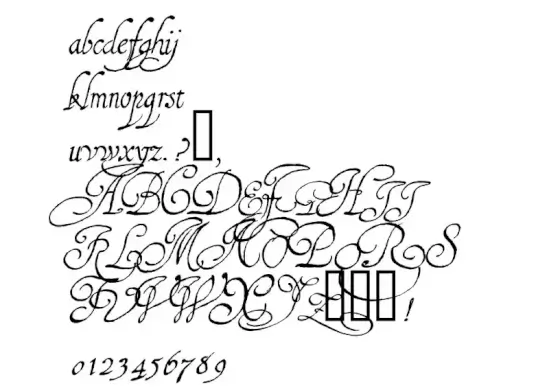 abcdefghij
klmnopqrst
uvwxyz.?▯,
ABCDEFGHIJ
KLMNOPQRS
TUVWXYZ▯▯▯!
0123456789